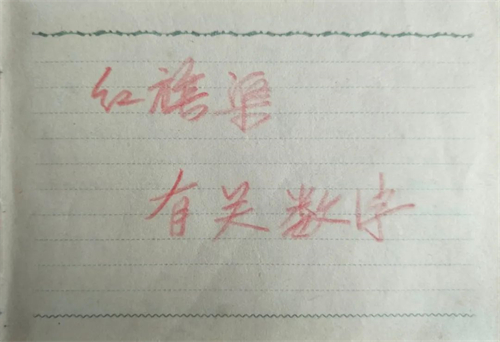 红旗渠
有关数字